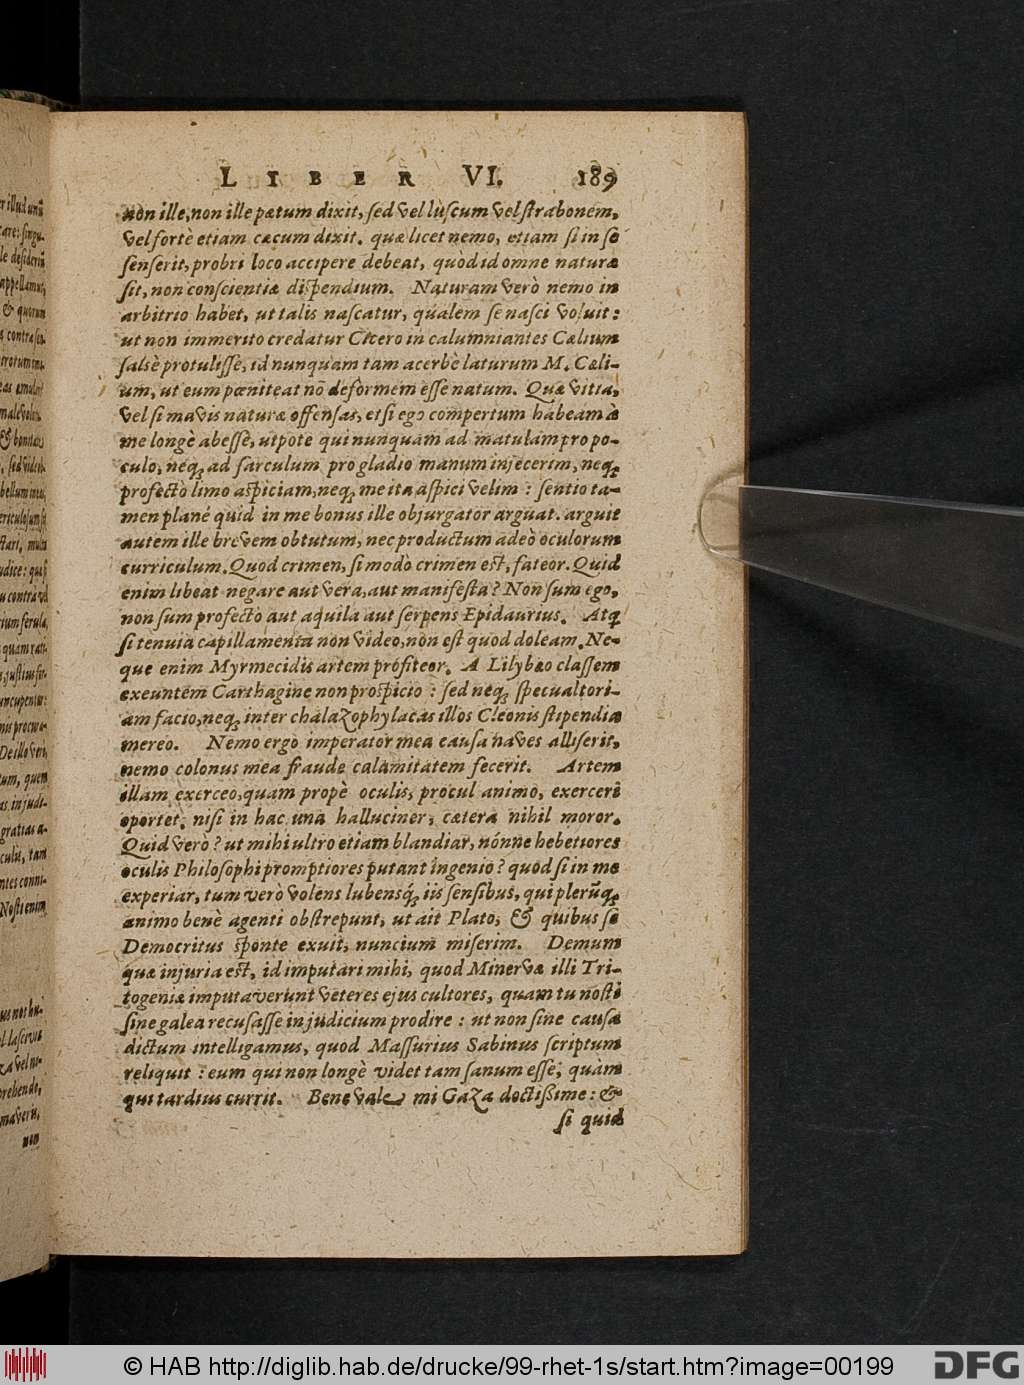 LIBER VI. 189
non ille, non ille pætum dixit, sed vel luscum vel strabonem,
vel fortè etiam cæcum dixit. quæ licet nemo, etiam si in se
senserit, probri loco accipere debeat, quod id omne naturæ
sit, non conscientiæ dispendium. Naturam verò nemo in
arbitrio habet, ut talis nascatur, qualem se nasci voluit:
ut non immerito credatur Cicero in calumniantes Cælium
salsè protulisse, id nunquam tam acerbè laturum M. Cæli-
um, ut eum pœniteat nō deformem esse natum. Quæ vitia,
vel si mavis naturæ offensas, etsi ego compertum habeam à
me longè abesse, utpote qui nunquam ad matulam pro po-
culo, neq; ad sarculum pro gladio manum injecerim, neq;
profectò limo aspiciam, neq; me ita aspici velim: sentio ta-
men plané quid in me bonus ille objurgator arguat. arguit
autem ille brevem obtutum, nec productum adeò oculorum
curriculum. Quod crimen, si modò crimen est, fateor. Quid
enim libeat negare aut vera, aut manifesta? Non sum ego,
non sum profectò aut aquila aut serpens Epidaurius. Atq;
si tenuia capillamenta non video, non est quod doleam. Ne-
que enim Myrmecidis artem profiteor. A Lilybæo classem
exeuntem Carthagine non prospicio: sed neq; specualtori-
am facio, neq; inter chalazophylacas illos Cleonis stipendia
mereo. Nemo ergo imperator mea causa naves alliserit,
nemo colonus mea fraude calamitatem fecerit. Artem
illam exerceo, quam propè oculis, procul animo, exercere
oportet; nisi in hac una halluciner, cætera nihil moror.
Quid verò? ut mihi ultro etiam blandiar, nónne hebetiores
oculis Philosophi promptiores putant ingenio? quod si in me
experiar, tum verò volens lubensq́; iis sensibus, qui plerūq;
animo benè agenti obstrepunt, ut ait Plato, & quibus se
Democritus sponte exuit, nuncium miserim. Demum
quæ injuria est, id imputari mihi, quod Minervæ illi Tri-
togeniæ imputaverunt veteres ejus cultores, quam tu nosti
sine galea recusasse in judicium prodire: ut non sine causa
dictum intelligamus, quod Massurius Sabinus scriptum
reliquit: eum qui non longè videt tam sanum esse, quàm
qui tardius currit. Bene vale mi Gaza doctissime: &
si quid
© HAB http://diglib.hab.de/drucke/99-rhet-1s/start.htm?image=00199
DFG